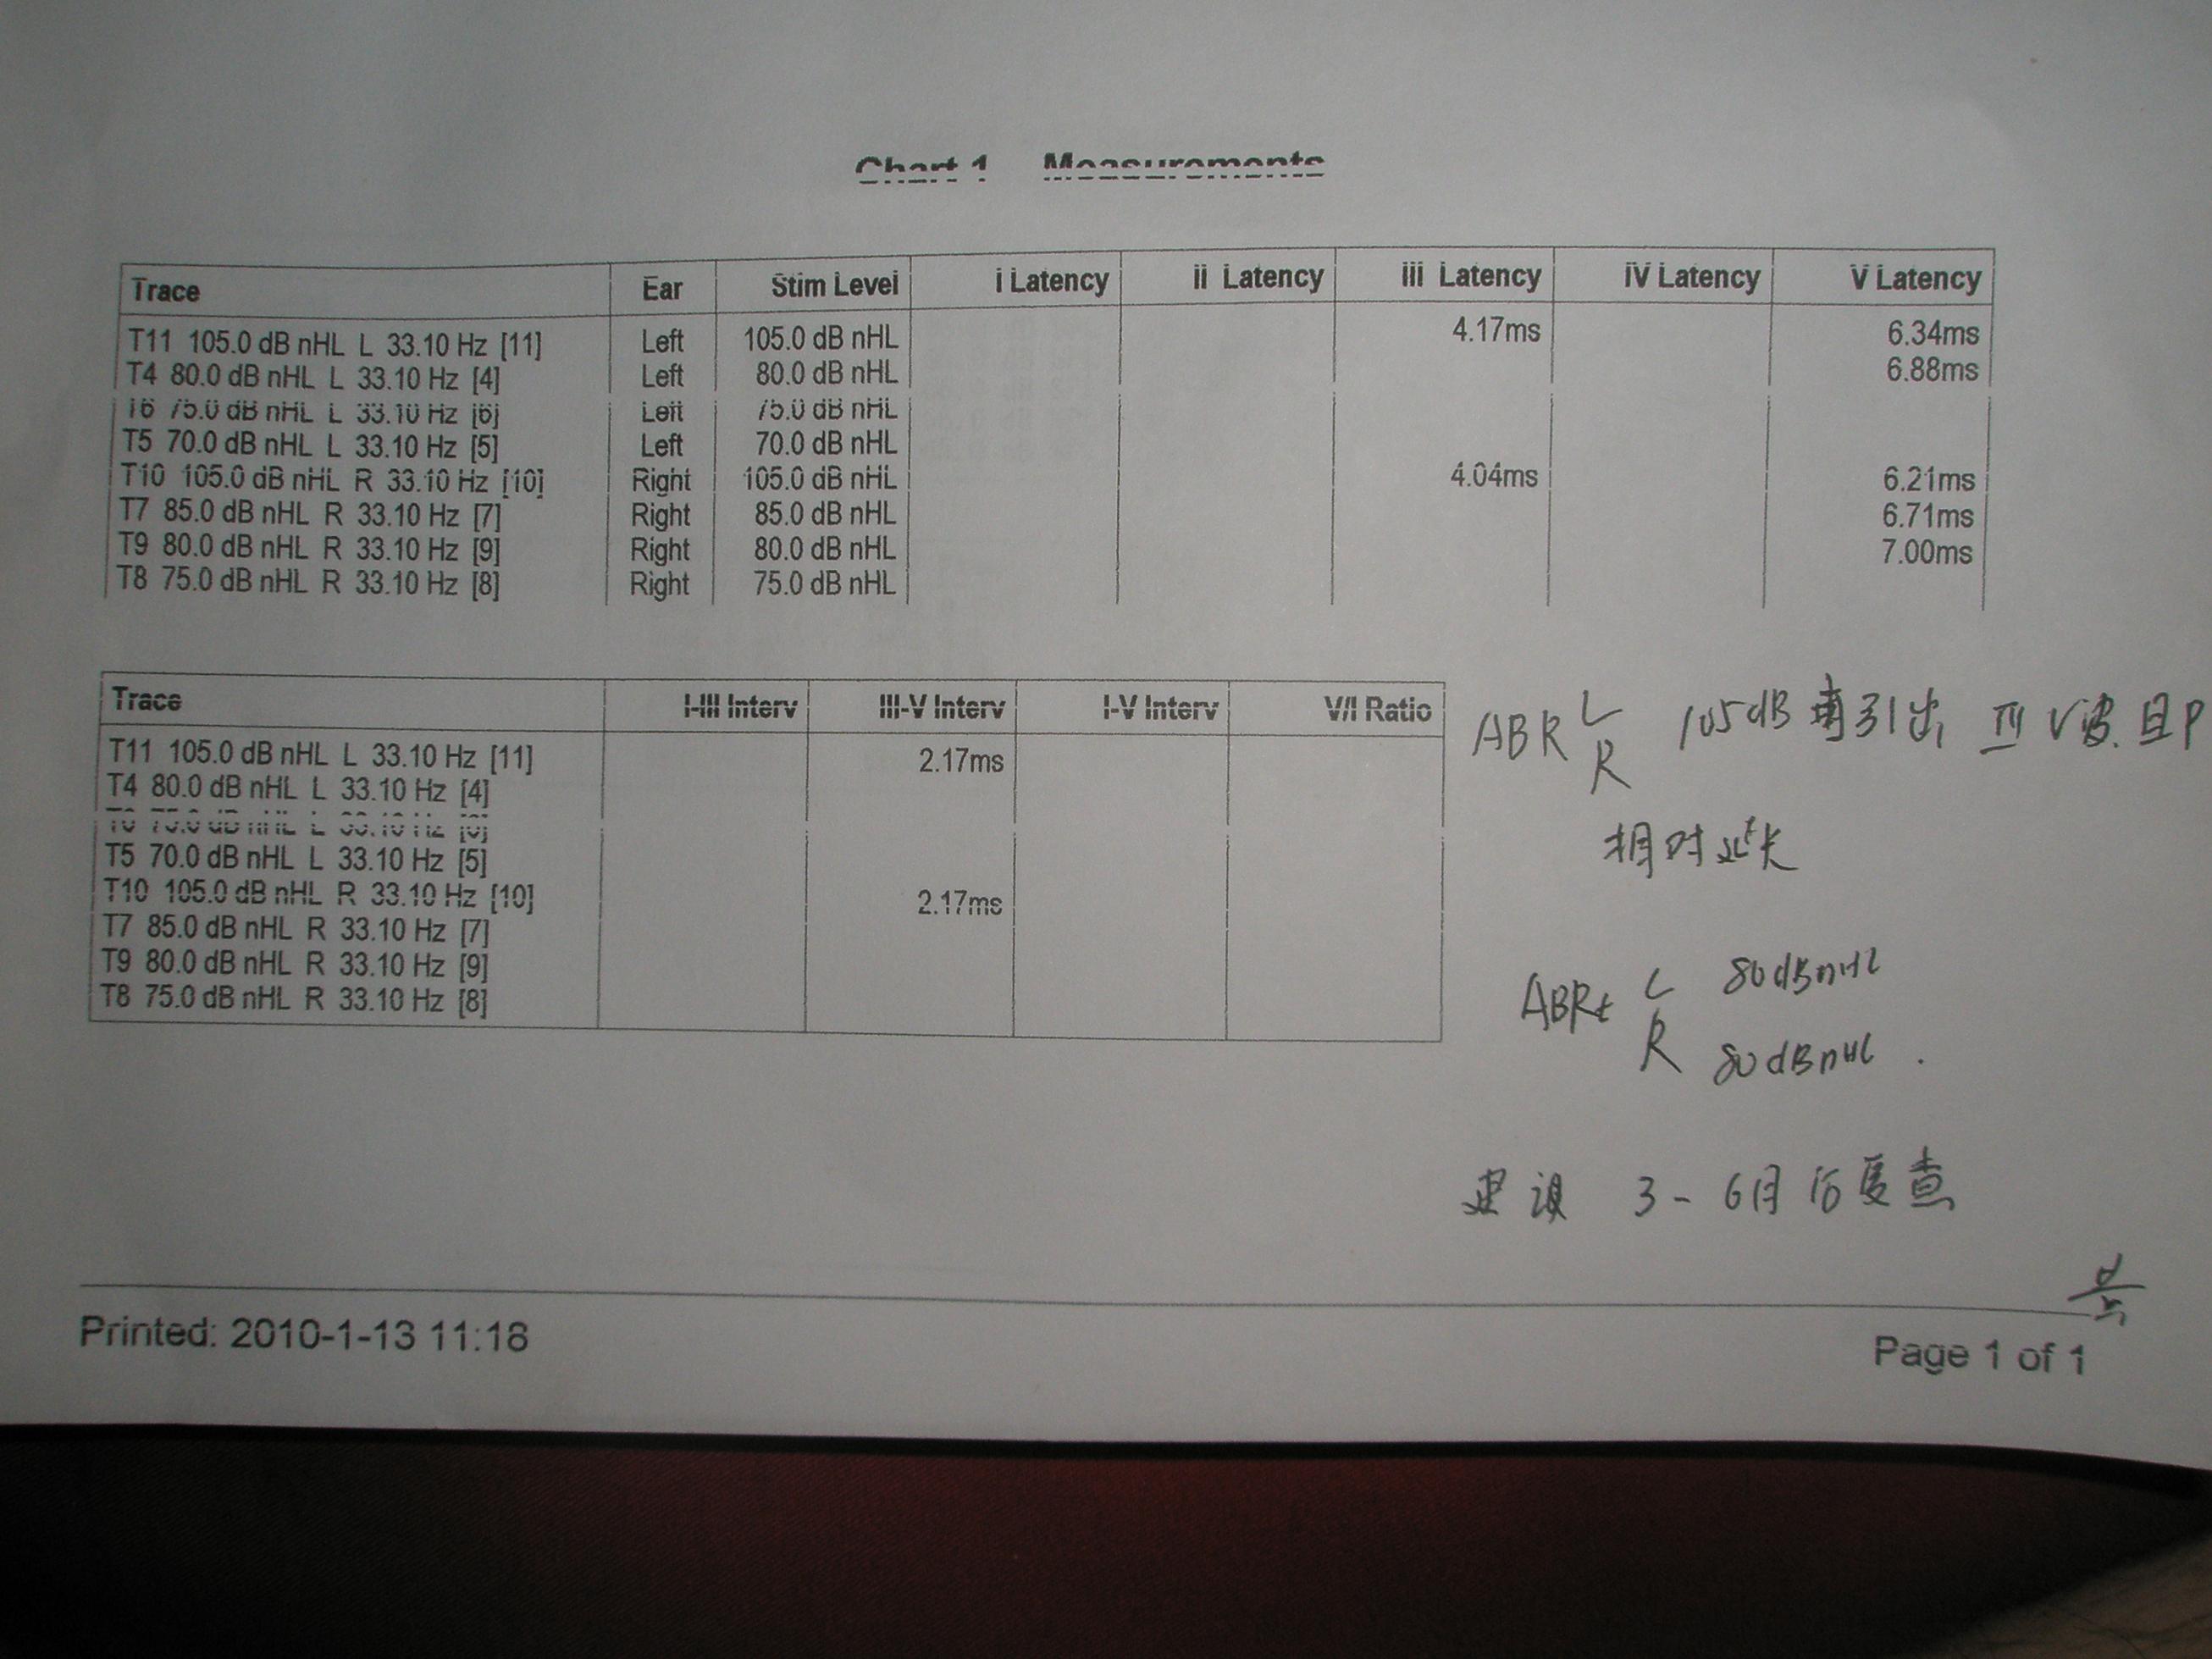 Chart 1 Measurements
Trace Ear Stim Level I Latency II Latency III Latency IV Latency V Latency
T11 105.0 dB nHL L 33.10 Hz [11] Left 105.0 dB nHL 4.17ms 6.34ms
T4 80.0 dB nHL L 33.10 Hz [4] Left 80.0 dB nHL 6.88ms
T6 75.0 dB nHL L 33.10 Hz [6] Left 75.0 dB nHL
T5 70.0 dB nHL L 33.10 Hz [5] Left 70.0 dB nHL
T10 105.0 dB nHL R 33.10 Hz [10] Right 105.0 dB nHL 4.04ms 6.21ms
T7 85.0 dB nHL R 33.10 Hz [7] Right 85.0 dB nHL 6.71ms
T9 80.0 dB nHL R 33.10 Hz [9] Right 80.0 dB nHL 7.00ms
T8 75.0 dB nHL R 33.10 Hz [8] Right 75.0 dB nHL
Trace I-III Interv III-V Interv I-V Interv V/I Ratio
T11 105.0 dB nHL L 33.10 Hz [11] 2.17ms
T4 80.0 dB nHL L 33.10 Hz [4]
T6 75.0 dB nHL L 33.10 Hz [6]
T5 70.0 dB nHL L 33.10 Hz [5]
T10 105.0 dB nHL R 33.10 Hz [10] 2.17ms
T7 85.0 dB nHL R 33.10 Hz [7]
T9 80.0 dB nHL R 33.10 Hz [9]
T8 75.0 dB nHL R 33.10 Hz [8]
ABR L R 105dB 引出 III V波 且P
相对延长
ABRt L 80dBnHL
R 80dBnHL.
建议 3-6月后复查
Printed: 2010-1-13 11:18
Page 1 of 1